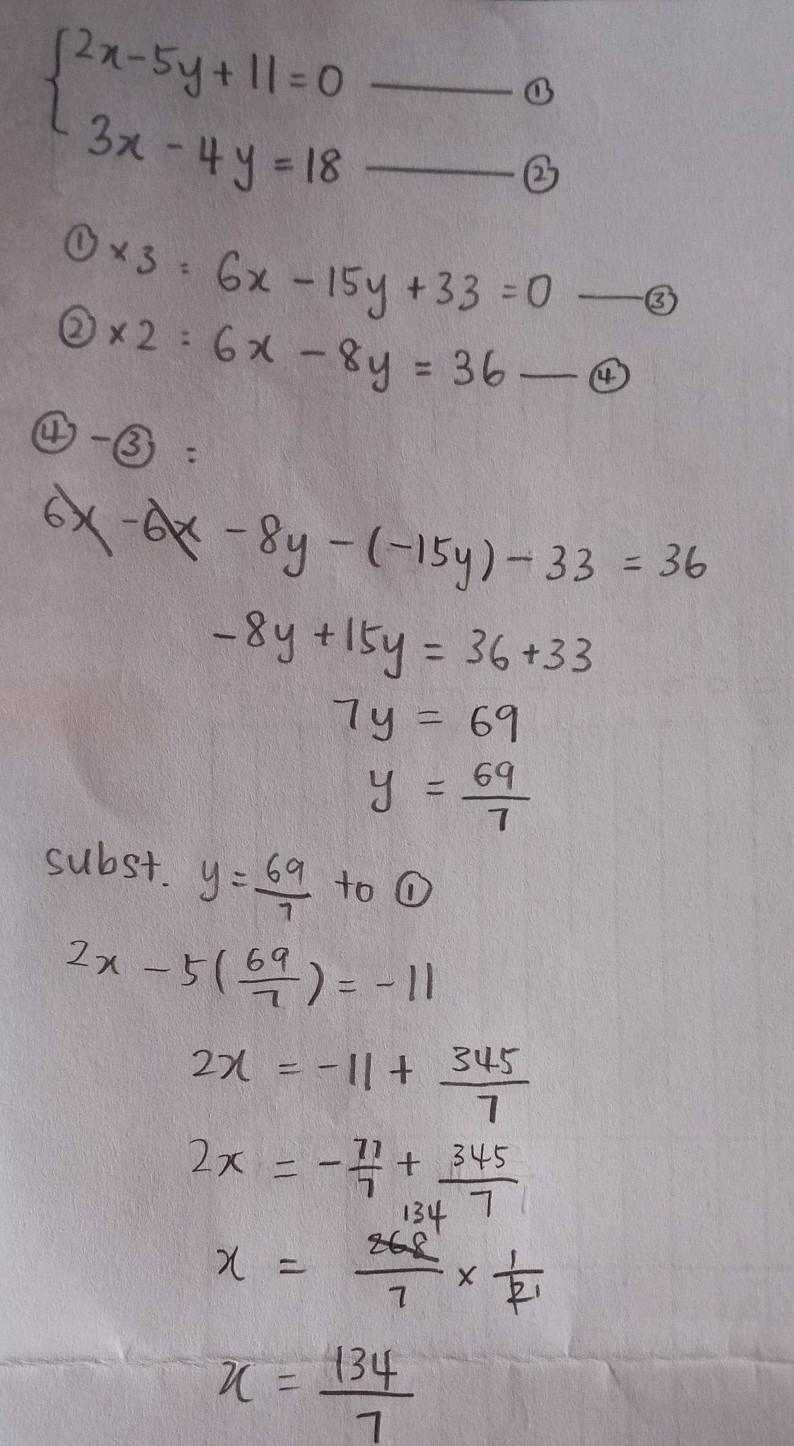 2x-5y+11=0 ——— ①
3x-4y=18 ——— ②
①×3 : 6x-15y+33=0 — ③
②×2 : 6x-8y=36 — ④
④-③ :
6x-6x-8y-(-15y)-33=36
-8y+15y=36+33
7y=69
y=69/7
subst. y=69/7 to ①
2x-5(69/7)=-11
2x=-11+345/7
2x=-77/7+345/7
134
x=268/7×1/2 1
x=134/7